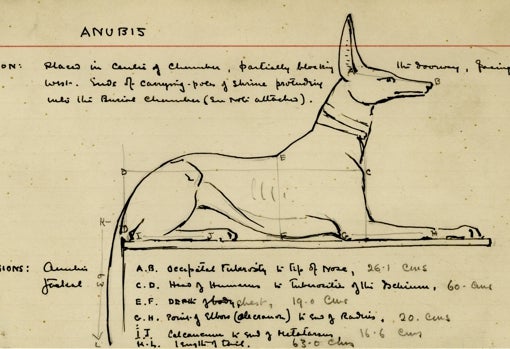 ANUBIS
ON: Placed in centre of Chamber, partially blocking the doorway, facing
West. Ends of carrying-poles of shrine protruding
into the Burial Chamber (See Note attached).
A
B
E
D
C
K
I
J
F
G
H
63
L
IONS: Anubis A.B. Occipital Tuberosity to tip of Nose, 26.1 cms
Jackal C.D. Head of Humerus to Tuberosities of the Ischium, 60. cms
E.F. Depth of body chest, 19.0 cms
G.H. Point of Elbow (olecranon) to End of Radius, 20. cms
I.J. Calcaneum to end of Metatarsus 16.6 cms
K.L. Length of tail. 63.0 cms